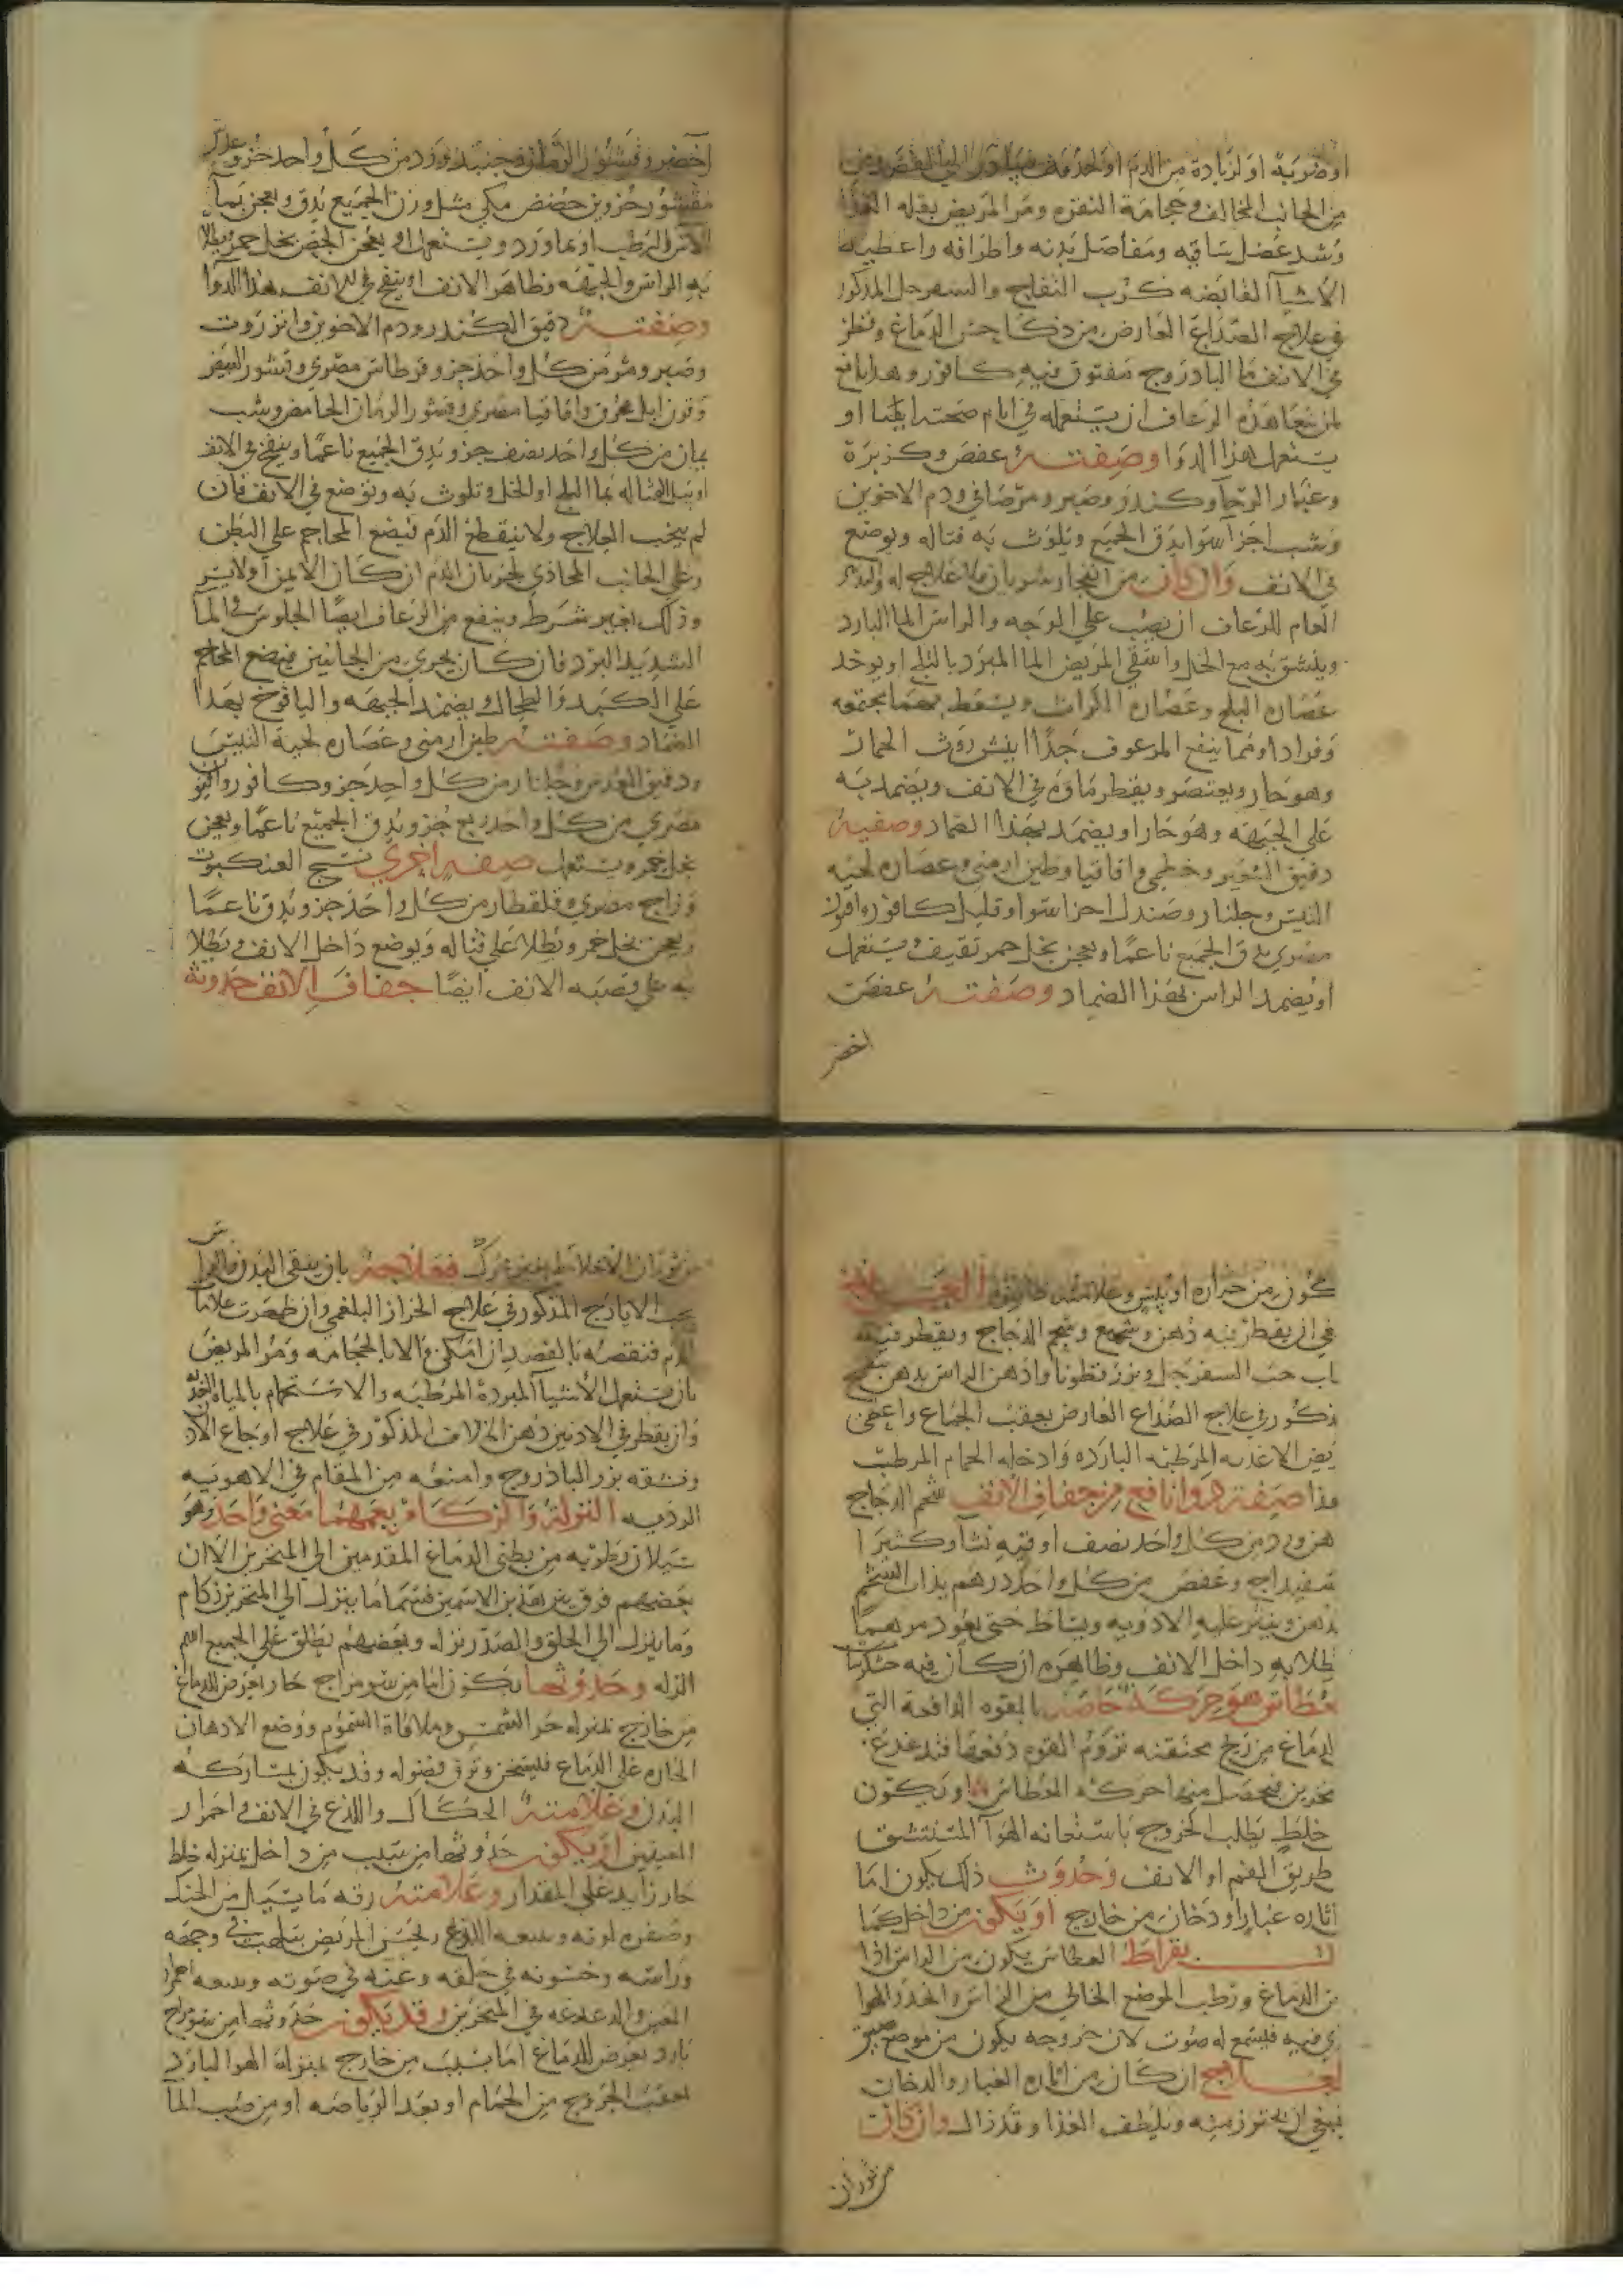 او ضربة او لزيادة من الدم او لحدة
من الجانب المخالف وحجامة النقره ومر المريض بقله الغذا
وشد عضل ساقيه ومفاصل يديه واطرافه واعطيه
الاشيآ القابضه كرُب التفاح والسفرجل المذكور
في علاج الصداع العارض من ذكا حس الدماغ وقطر
في الانف ما البادروج مفتوق فيه كافور وهذا نافع
لمن يتعاهده الرعاف ان يستعمله في ايام صحته ايضا او
يستعمل هذا الدوا وصفته عفص وكزبرة
وغبار الرحا وكندر وصبر ومر صافي ودم الاخوين
وشب اجزآ سوا يدق الجميع ويلوث به فتاله ويوضع
في الانف وان كان من انفجار شريان فلا علاج له والتدبير
العام للرعاف ان يصب علي الوجه والراس الما البارد
وينشق به مع الخل واسقي المريض الما المبرد بالثلج او يوخذ
عصاره البلح وعصاره الكراث ويسعط بهما مجتمعه
وفرادا ومما ينفع المرعوف جدًا اينشر روث الحمار
وهو حار ويعتصر ويقطر ماوه في الانف ويضمد به
علي الجبهه وهو حار او يضمد بهذا الضماد وصفته
دقيق الشعير وخطمي واقاقيا وطين ارمني وعصاره لحيه
التيس وجلنار وصندل اجزا سوا وقليل كافور وافيون
مصري يدق الجميع ناعمًا ويعجن بخل خمر ثقيف ويستعمل
او يضمد الراس بهذا الضماد وصفته عفص
اخضر
اخضر وقشور الرمان وجنبد ورد من كل واحد جزو عدس
مقشور جزوين حضض مكي مثل وزن الجميع يدق ويعجن بمآ
الاس الرطب او بما ورد ويستعمل او يعجن الجص بخل خمر ويطلا
به الراس والجبهه وظاهر الانف او ينفخ في الانف هذا الدوا
وصفته دقيق الكندر ودم الاخوين وانزروت
وصبر ومر من كل واحد جزو قرطاس مصري وقشور البيض
وقرن ايل محرق واقاقيا مصري وقشور الرمان الحامض وشب
يمان من كل واحد نصف جزو يدق الجميع ناعمًا وينفخ في الانف
او تبل الفتاله بما البلح او الخل وتلوث به وتوضع في الانف فان
لم ينجب العلاج ولا ينقطع الدم فيضع المحاجم علي البطن
وعلي الجانب المحاذي لجريان الدم ان كان الايمن او الايسر
وذلك بغير شرط وينفع من الرعاف ايضًا الجلوس في الما
الشديد البرد فان كان يجري من الجانبين فيضع المحاجم
علي الكبد والطحال ويضمد الجبهه واليافوخ بهذا
الضماد وصفته طين ارمني وعصاره لحية التيس
ودقيق العدس وجلنار من كل واحد جزو وكافور وافيون
مصري من كل واحد ربع جزو يدق الجميع ناعمًا ويعجن
بخل خمر ويستعمل صفه اخري نسج العنكبوت
وزاج مصري وقلقطار من كل واحد جزو يدق ناعمًا
ويعجن بخل خمر ويطلا علي فتاله ويوضع داخل الانف ويطلا
به علي قصبه الانف ايضًا جفاف الانف حدوثه
كون من حراره او يبس وعلامته ظاهره العلاج
في ان يقطر فيه دهن وشمع وشحم الدجاج ويقطر فيه
اب حب السفرجل وبزر قطونا وادهن الراس بدهن بنفسج
ذكور في علاج الصداع العارض بعقب الجماع واعطي
يض الاغذيه المرطبه البارده وادخله الحمام المرطب
هذا صفة دوا نافع من جفاف الانف شحم الدجاج
هن ورد من كل واحد نصف اوقيه نشا وكثيرا
سفيداج وعفص من كل واحد درهم يذاب الشحم
دهن وينثر عليه الادويه ويساط حتى يعود مرهمًا
يطلا به داخل الانف وظاهره ان كان فيه
عطاس هو حركة خاصه بالقوه الدافعة التي
لدماغ من ريح محتقنه تروم القوه دفعها فتدغدغ
نخرين فيحصل منها حركه العطاس او تكون
خلط يطلب الخروج باستعانه الهوآ المستنشق
طريق الفم او الانف وحدوث ذلك يكون اما
اثاره غبار او دخان من خارج او يكون من داخل كما
بقراط العطاس يكون من الراس اذا
ن الدماغ ورطب الموضع الخالي من الراس وانحدر الهوا
ي فيه فليسمع له صوت لان خروجه يكون من موضع ضيق
لعلاج ان كان من اثاره الغبار والدخان
ينبغي ان يحترز منه ويلطف الغذا وقد زال وان كان
من ثوران
من ثوران الاخلاط فعلاجه بان ينقي البدن والراس
بحب الايارج المذكور في علاج الخراز البلغمي وان ظهرت علامآ
الدم فنقصه بالفصد ان امكن والا بالحجامه ومر المريض
بان يستعمل الاشيآ المبردة المرطبه والاستحمام بالمياه العذبه
وان يقطر في الاذنين دهن الخلاف المذكور في علاج اوجاع الاذن
وتنشقه بزر الباذروج وامنعه من المقام في الاهويه
الرديه النزلة والزكام يعمهما معني واحد وهو
سيلان رطوبه من بطني الدماغ المقدمين الي المنخرين الا ان
بعضهم فرق بين هذين الاسمين فسما ما ينزل الي المنخرين زكام
وما ينزل الي الحلق والصدر نزله وبعضهم يطلق علي الجميع اسم
النزله وحدوثها يكون اما من سو مزاج حار يعرض للدماغ
من خارج بمنزله حر الشمس وملاقاة السموم ووضع الادهان
الحاره علي الدماغ فليسخن وترق فضوله وقد يكون بمشاركه
البدن وعلامته الحكاك واللذع في الانف واحمرار
العينين او يكون حدوثها من سبب من داخل بمنزله خلط
حار زايد علي المقدار وعلامته رقه ما يسيل من الحنك
وصفره لونه وبحس المريض بتلهب في وجهه
وراسه وخشونه في حلقه وغنه في صوته احمرار
العين والدغدغه في المنخرين وقد يكون حدوثها من سو مزاج
بارد يعرض للدماغ اما بسبب من خارج بمنزلة الهوا البارد
بعقب الخروج من الحمام او بعد الرياضه او من صب الما